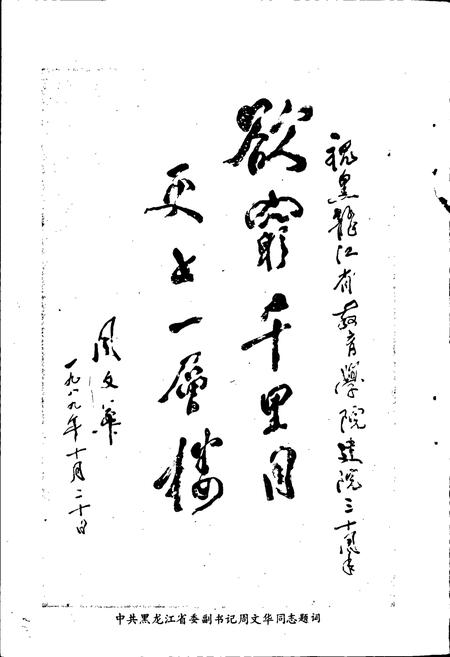 祝黑龍江省教育學院建院三十周年
欲窮千里目
更上一層楼
周文华
一九八九年十月二十日
中共黑龙江省委副书记周文华同志题词